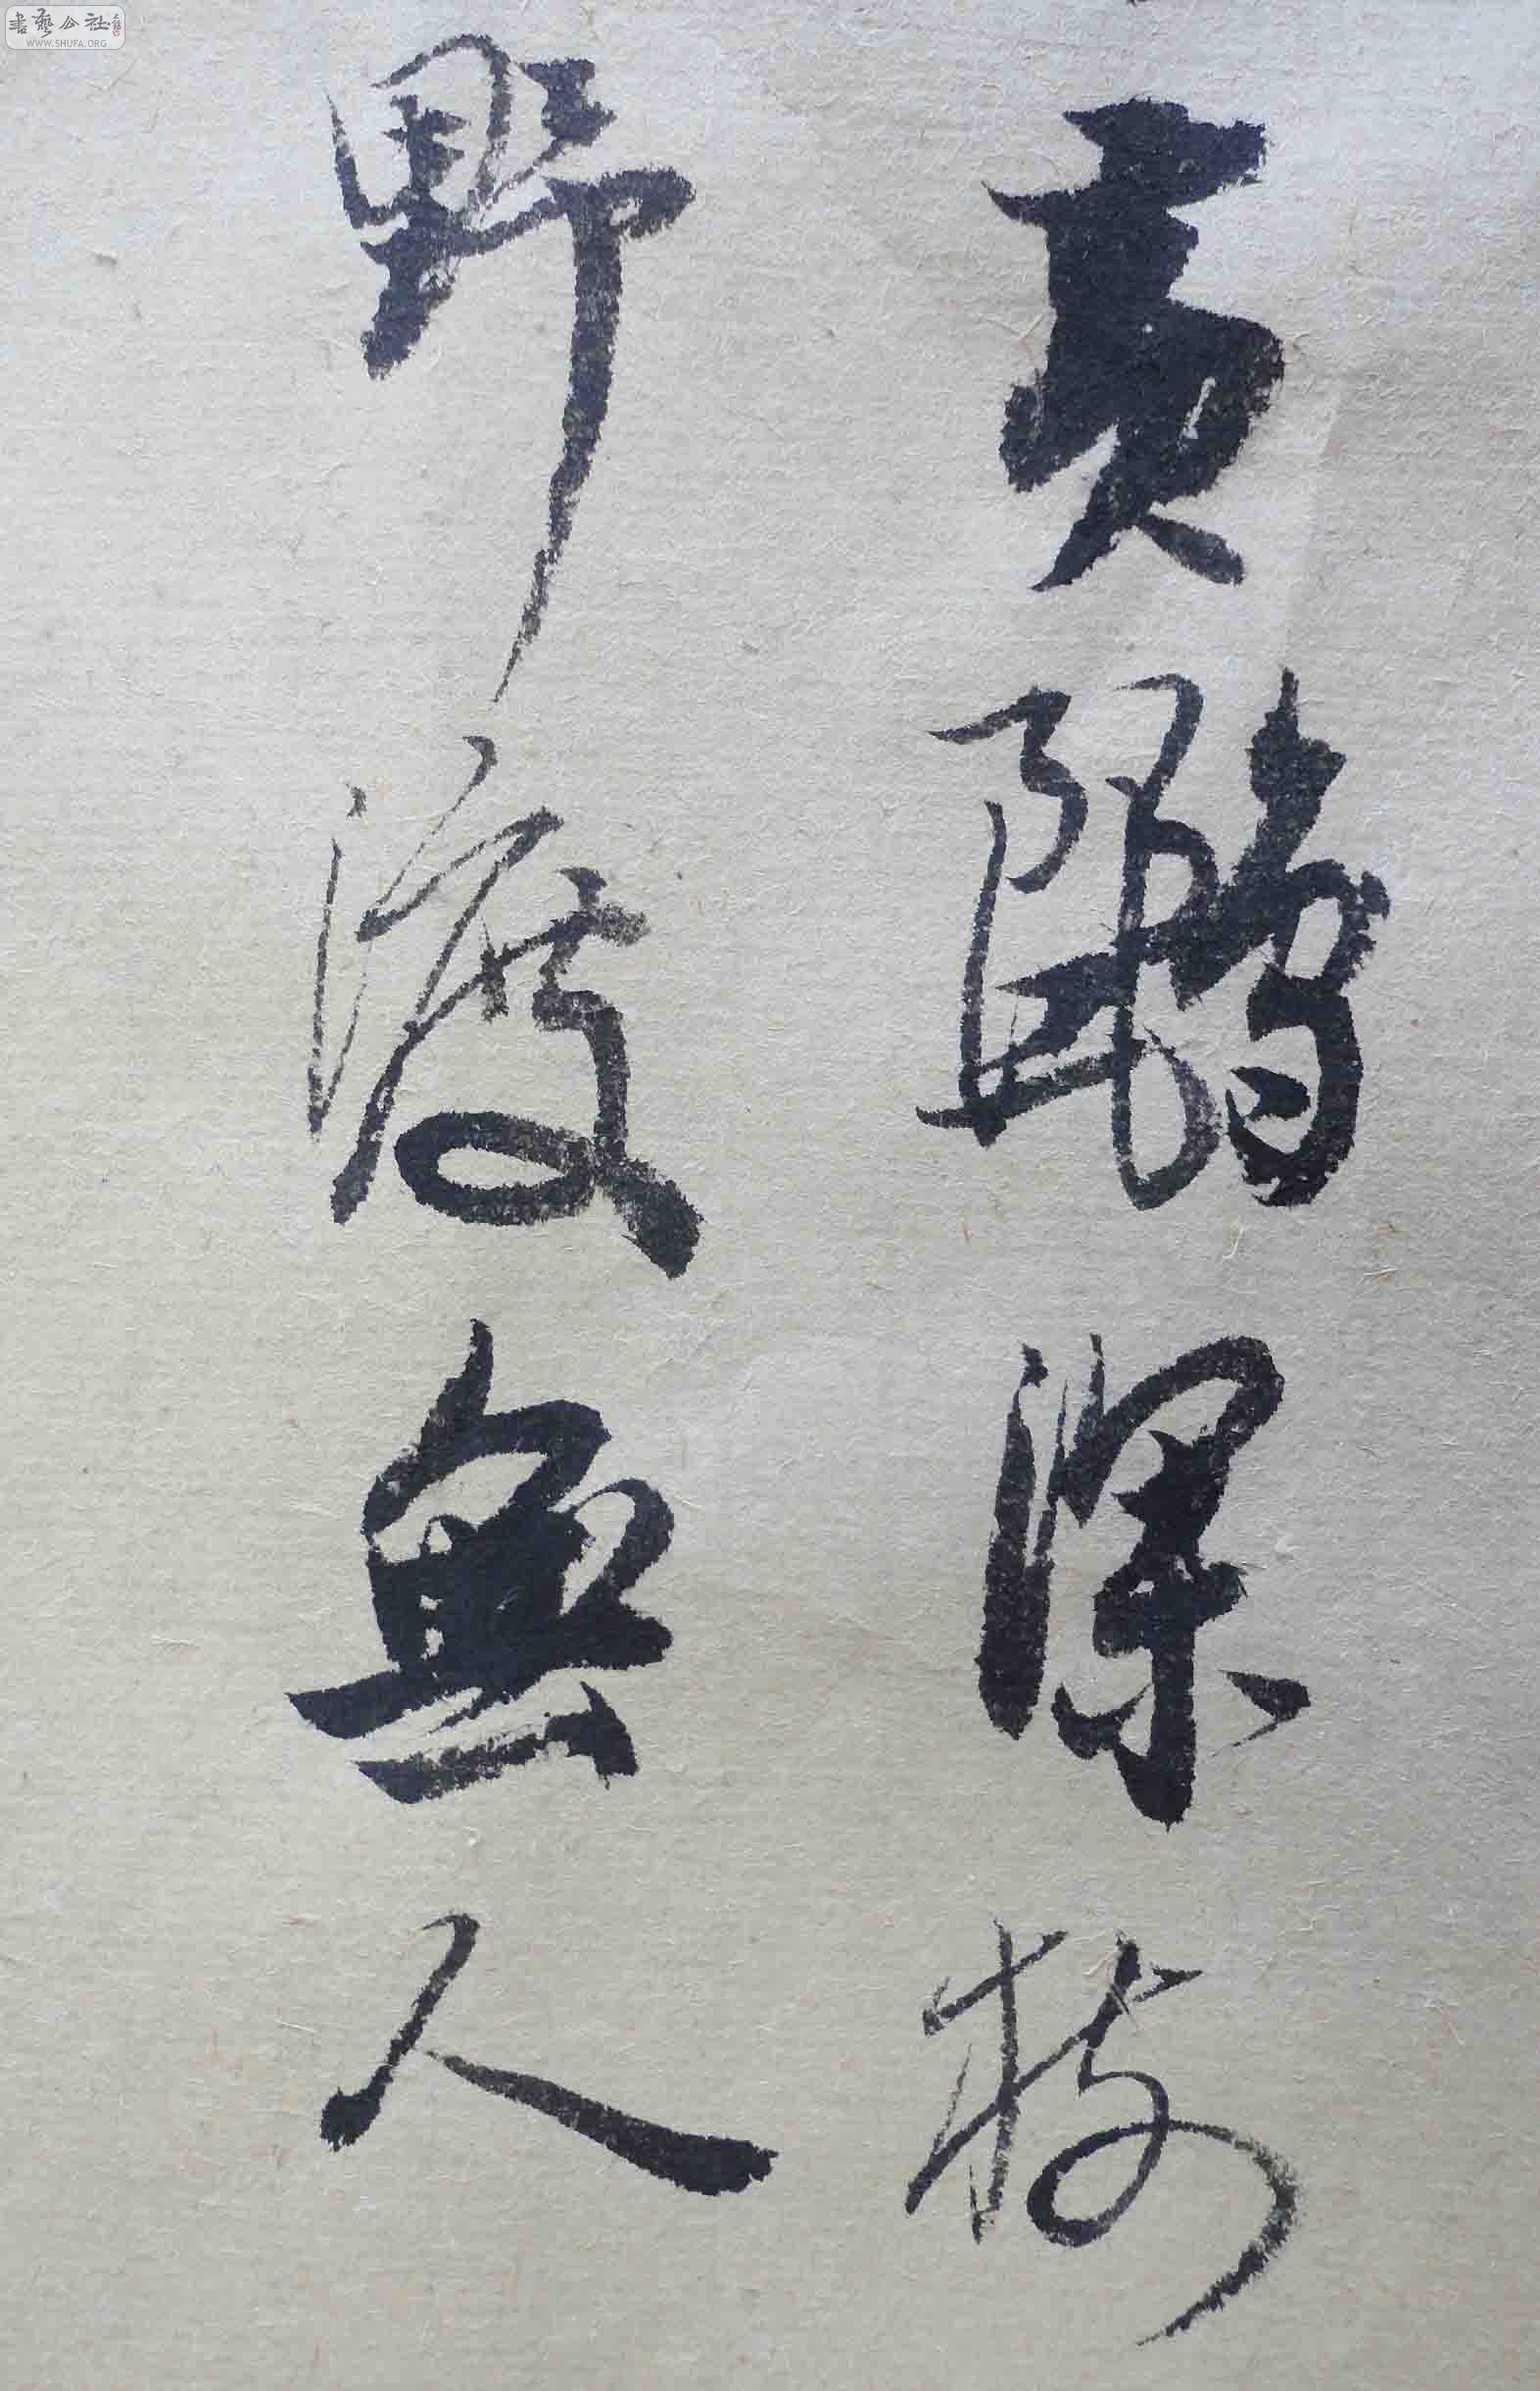 黃鸝深樹
野渡無人
書藝公社
WWW.SHUFA.ORG